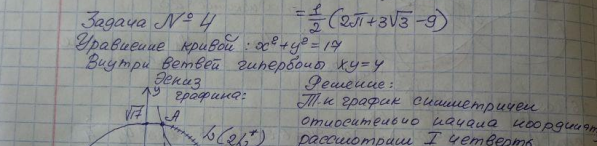 = 1/2 (2π+3√3-9)
Задача № 4
Уравнение кривой: x²+y²=17
Внутри ветвей гиперболы xy=4
Эскиз
графика:
y
√17
A
Решение:
Т.к график симметричен
относительно начала координат
рассмотрим I четверть